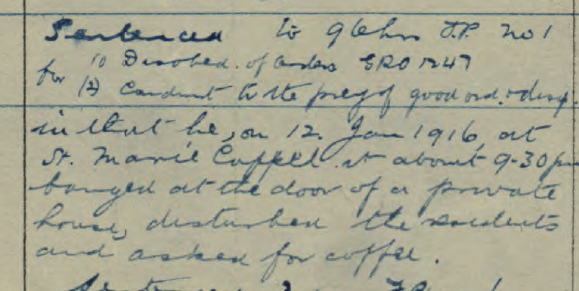 Sentenced to 96 hrs F.P. No 1
for (1) Disobed. of orders GRO 1247
(2) Conduct to the prej of good ord. & disp
in that he, on 12. Jan 1916, at
St. Marie Cappell at about 9-30 pm
banged at the door of a private
house, disturbed the residents
and asked for coffee.